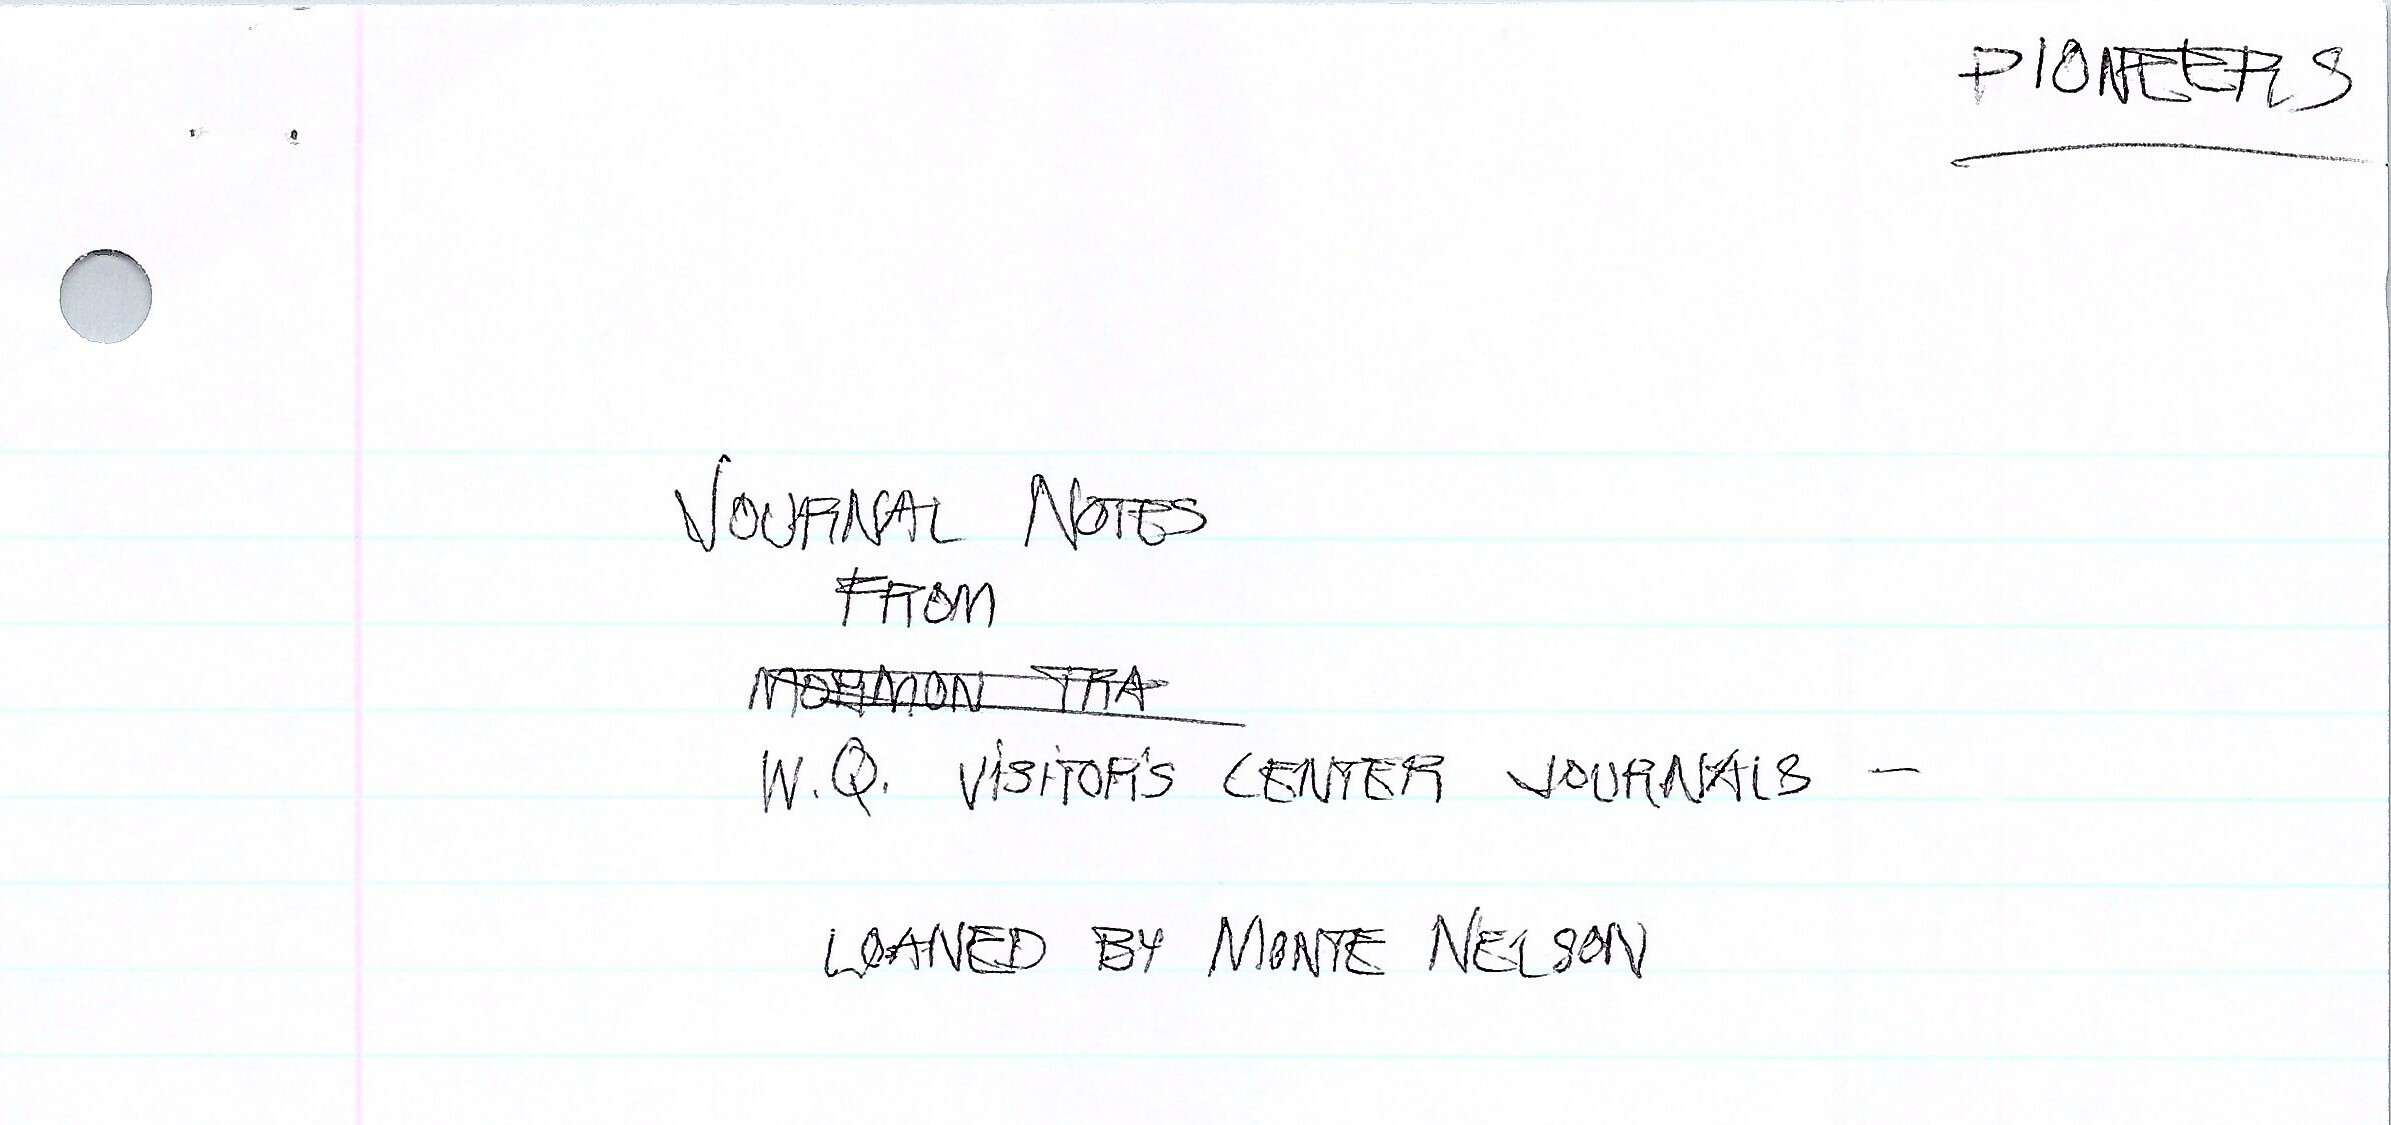 PIONEERS
JOURNAL NOTES
FROM
MORMON TRA
W.Q. VISITOR'S CENTER JOURNALS —
LOANED BY MONTE NELSON